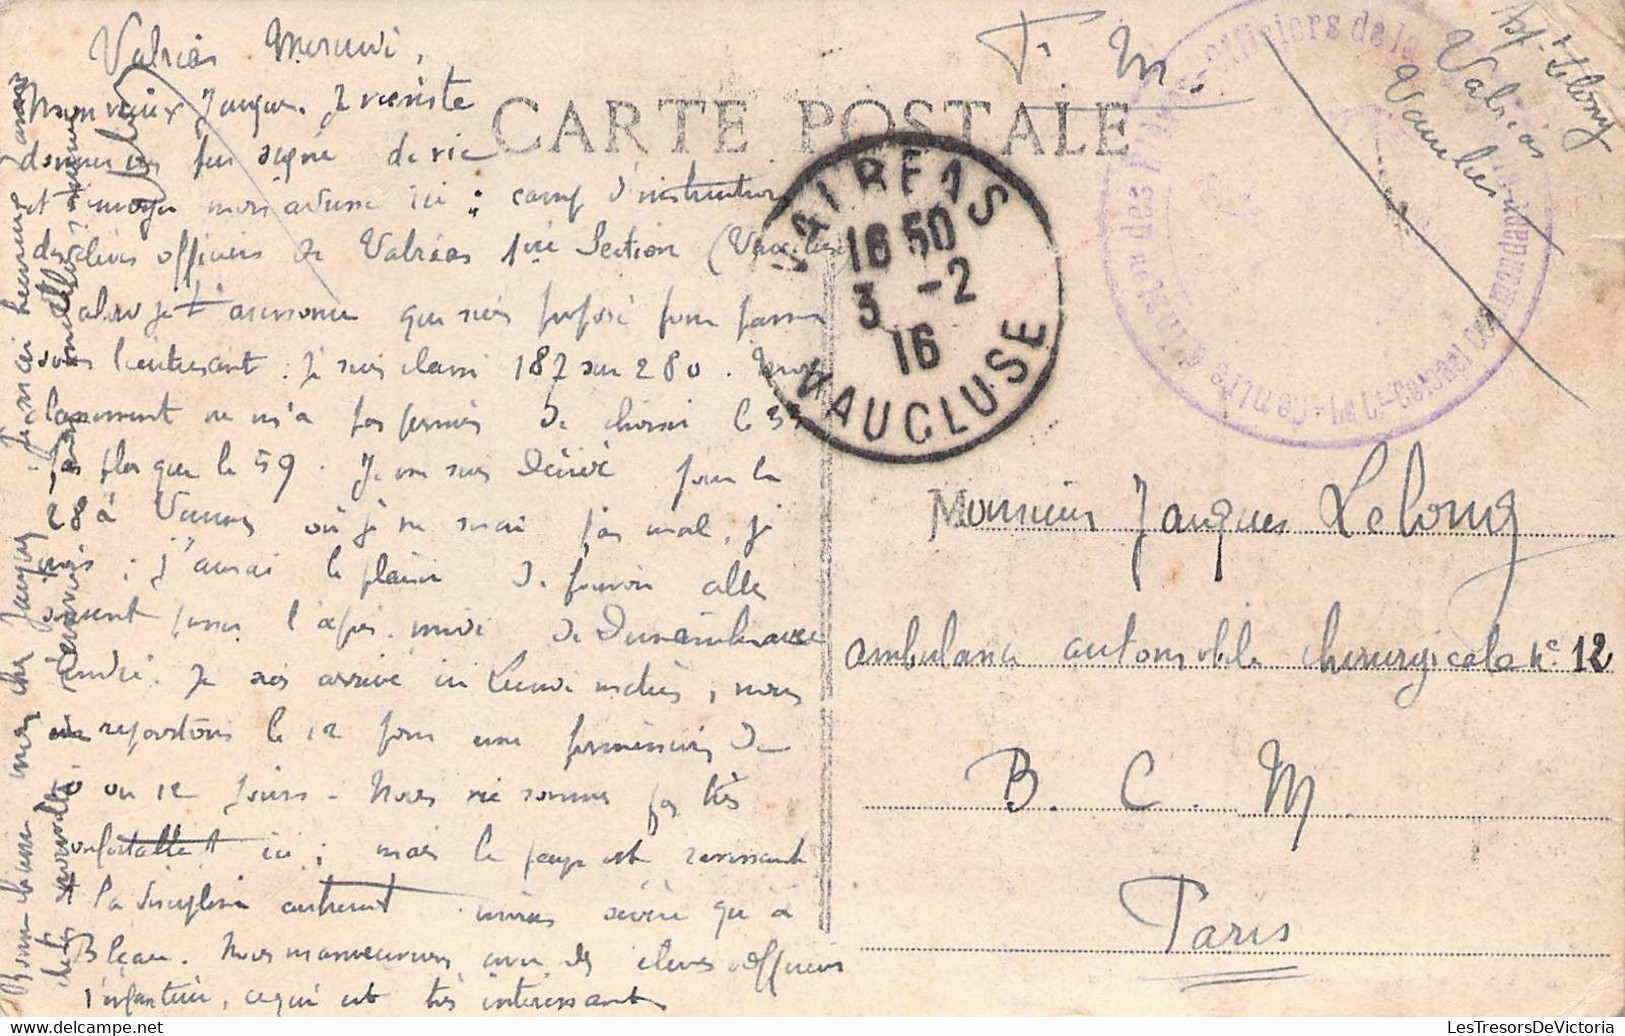 Valréas Mercredi,
Mon vieux Jacques. Je viens te
donner un peu signe de vie
et t'envoyer mon adresse ici : camp d'instruction
des élèves officiers de Valréas 1ère Section (Vaucluse)
alors je t'annonce que suis proposé pour passer
sous lieutenant : je suis classé 187 sur 280. Mon
classement ne m'a pas permis de choisir le 35
pas plus que le 59. Je me suis décidé pour le
28 à Vannes où je ne serai pas mal, je
crois ; j'aurai le plaisir de pouvoir aller
souvent passer l'après-midi de Dimanche avec
André. Je suis arrivé ici Lundi matin, nous
en repartons le 12 pour une permission de
10 ou 12 jours - Nous ne sommes pas très
confortablement ici ; mais le pays est ravissant
la discipline autrement moins sévère qu'à
Nous manœuvrons avec des élèves officiers
d'infanterie, ce qui est très intéressant
Bonne chance mon cher Jacques
CARTE POSTALE
F. M.
Lelong
Valréas
Vaucluse
VALREAS
16 50
3 - 2
16
VAUCLUSE
Officiers de la
Lt-Colonel Commandant
Monsieur Jacques Lelong
ambulance automobile chirurgicale n° 12
B. C. M.
Paris
LesTresorsDeVictoria